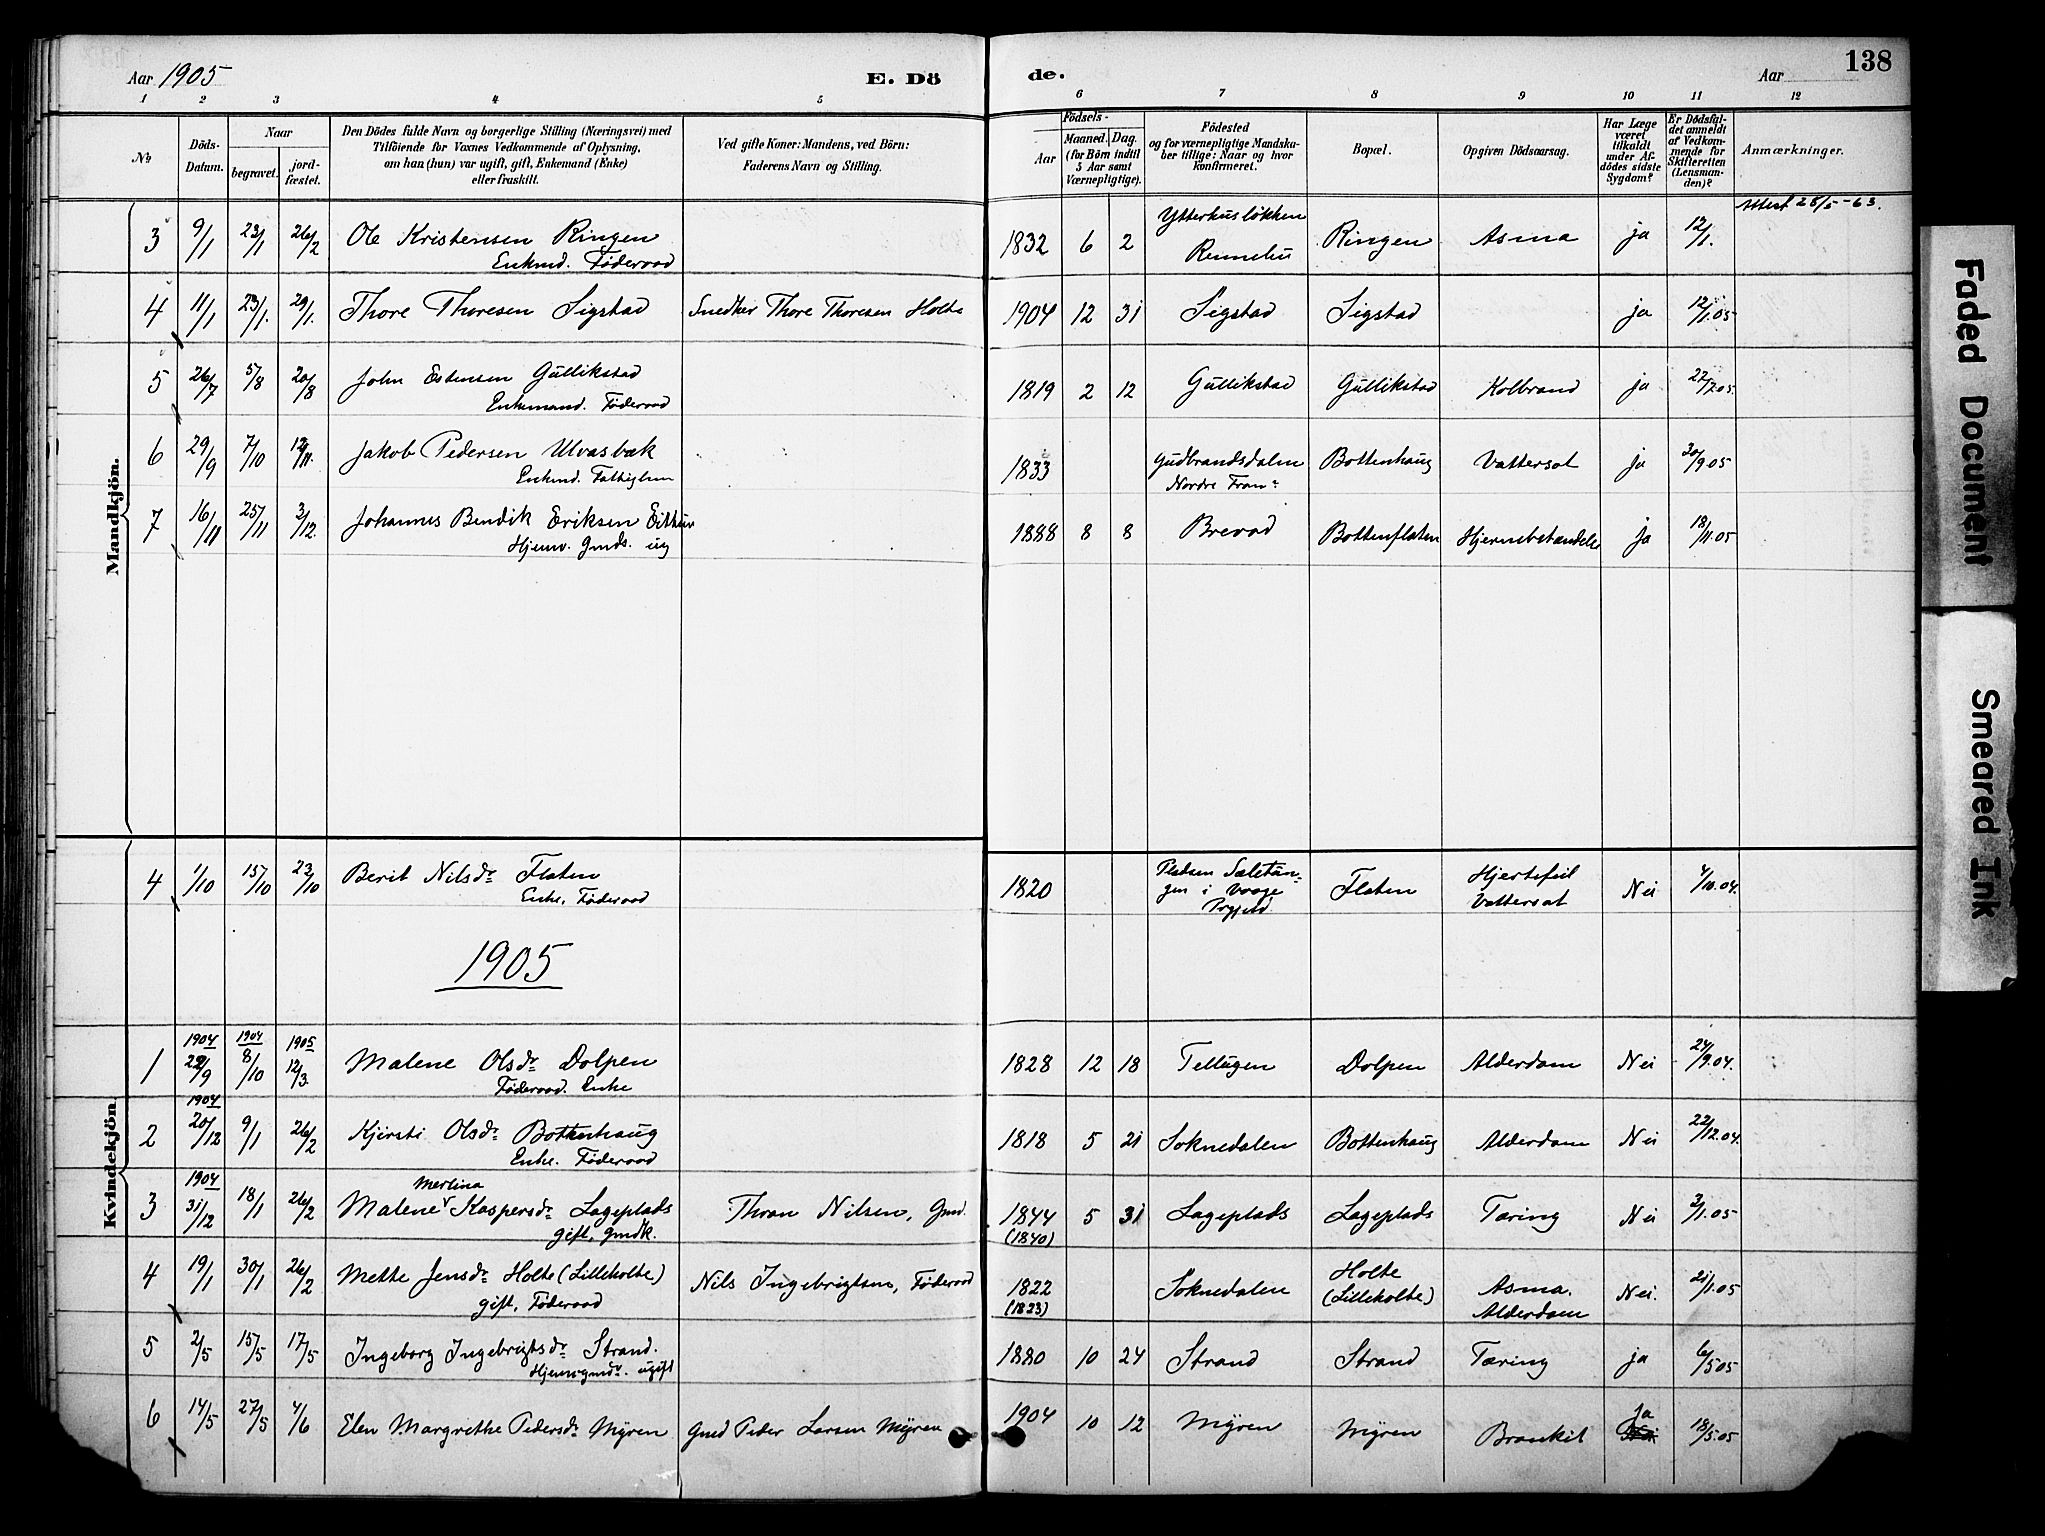 138
Aar 1905 E. Dö de. Aar
1 2 3 4 5 6 7 8 9 10 11 12
№
Döds-Datum.
Naar
begravet.
jordfæstet.
Den Dödes fulde Navn og borgerlige Stilling (Næringsvei) med
Tilföiende for Voxnes Vedkommende af Oplysning,
om han (hun) var ugift, gift, Enkemand (Enke)
eller fraskilt.
Ved gifte Koner: Mandens, ved Börn:
Faderens Navn og Stilling.
Födsels-
Aar
Maaned. Dag.
(for Börn indtil
5 Aar samt
Værnepligtige).
Födested
og for værnepligtige Mandska-
ber tillige: Naar og hvor
konfirmeret.
Bopæl.
Opgiven Dödsaarsag.
Har Læge
været
tilkaldt
under Af-
dödes sidste
Sygdom?
Er Dödsfal-
det anmeldt
af Vedkom-
mende for
Skifteretten
(Lensman-
den)?
Anmærkninger.
Mandkjön.
Attest 28/5-63.
3 9/1 23/1 26/2 Ole Kristensen Ringen 1832 6 2 Ytterhusløkken Ringen Asma ja 12/1.
Enkmd. Føderaad Rennebu
4 11/1 23/1. 29/1. Thore Thoresen Sigstad Snedker Thore Thoresen Holte 1904 12 31 Sigstad Sigstad ja 12/1.05
5 26/7 5/8 20/8 John Estensen Gullikstad 1819 2 12 Gullikstad Gullikstad Kolbrand ja 27/7.05.
Enkemand. Føderaad
6 29/9 7/10 12/11. Jakob Pedersen Ulvasbæk 1833 Gudbrandsdalen Bottenhaug Vattersot ja 30/9.05
Enkmd. Fattiglem Nordre Fron
7 16/11 25/11 3/12. Johannes Bendik Eriksen Eithun 1888 8 8 Brevad Bottenflaten Hjernebetændelse ja 18/11.05
Hjemv. Gmds. ug
Kvindekjön.
4 1/10 15/10 23/10 Berit Nilsdr Flaten 1820 Pladsen Sæletun-
gen i Vaage
Prgjeld Flaten Hjertefeil
Vattersot Nei 4/10.04.
Enke, Føderaad
1905
1 1904 22/9 1904 8/10 1905 12/3. Malene Olsdr Dolpen 1828 12 18 Tellugen Dolpen Alderdom Nei 24/9.04.
Føderaad. Enke
2 1904 20/12 9/1 26/2 Kjersti Olsdr Bottenhaug 1818 5 21 Soknedalen Bottenhaug Alderdom Nei 22/12.04.
Enke. Føderaad
Merlina
3 1904 31/12 18/1 26/2 Malene Kaspersdr Lageplads Thron Nilsen, Gmd. 1844 5 31 Lageplads Lageplads Tæring Nei 2/1.05
gift, gmdk. (1840)
4 19/1 30/1 26/2 Mette Jensdr Holte (Lilleholte) Nils Ingebrigtsen, Føderaad 1822 Soknedalen Holte
(Lilleholte) Asma.
Alderdom Nei. 21/1.05
gift, Føderaad (1823)
5 2/5 15/5 17/5 Ingeborg Ingebrigtsdr Strand. 1880 10 24 Strand Strand Tæring ja 6/5 05
Hjemv. gmdr. ugift
6 14/5 27/5 4/6 Elen Margrethe Pedersdr Myren Gmd Peder Larsen Myren 1904 10 12 Myren Myren Bronkit Ja 18/5.05
Faded Document
Smeared Ink